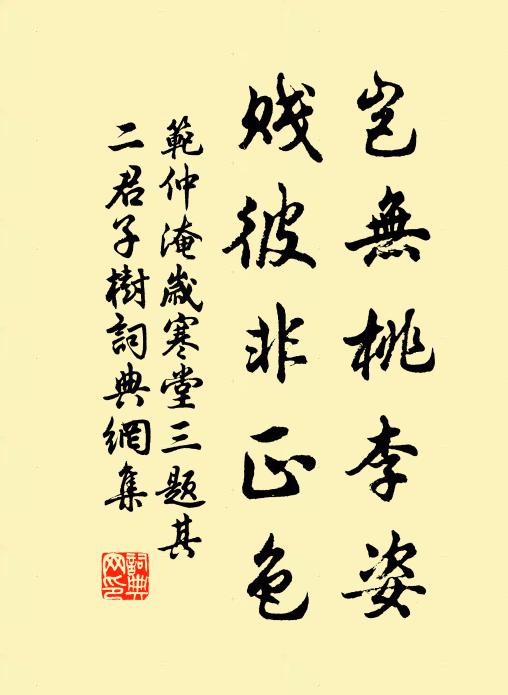 豈無桃李姿
賤彼非正色
範仲淹歲寒堂三題其
二君子樹詞典網集
詞典
网印